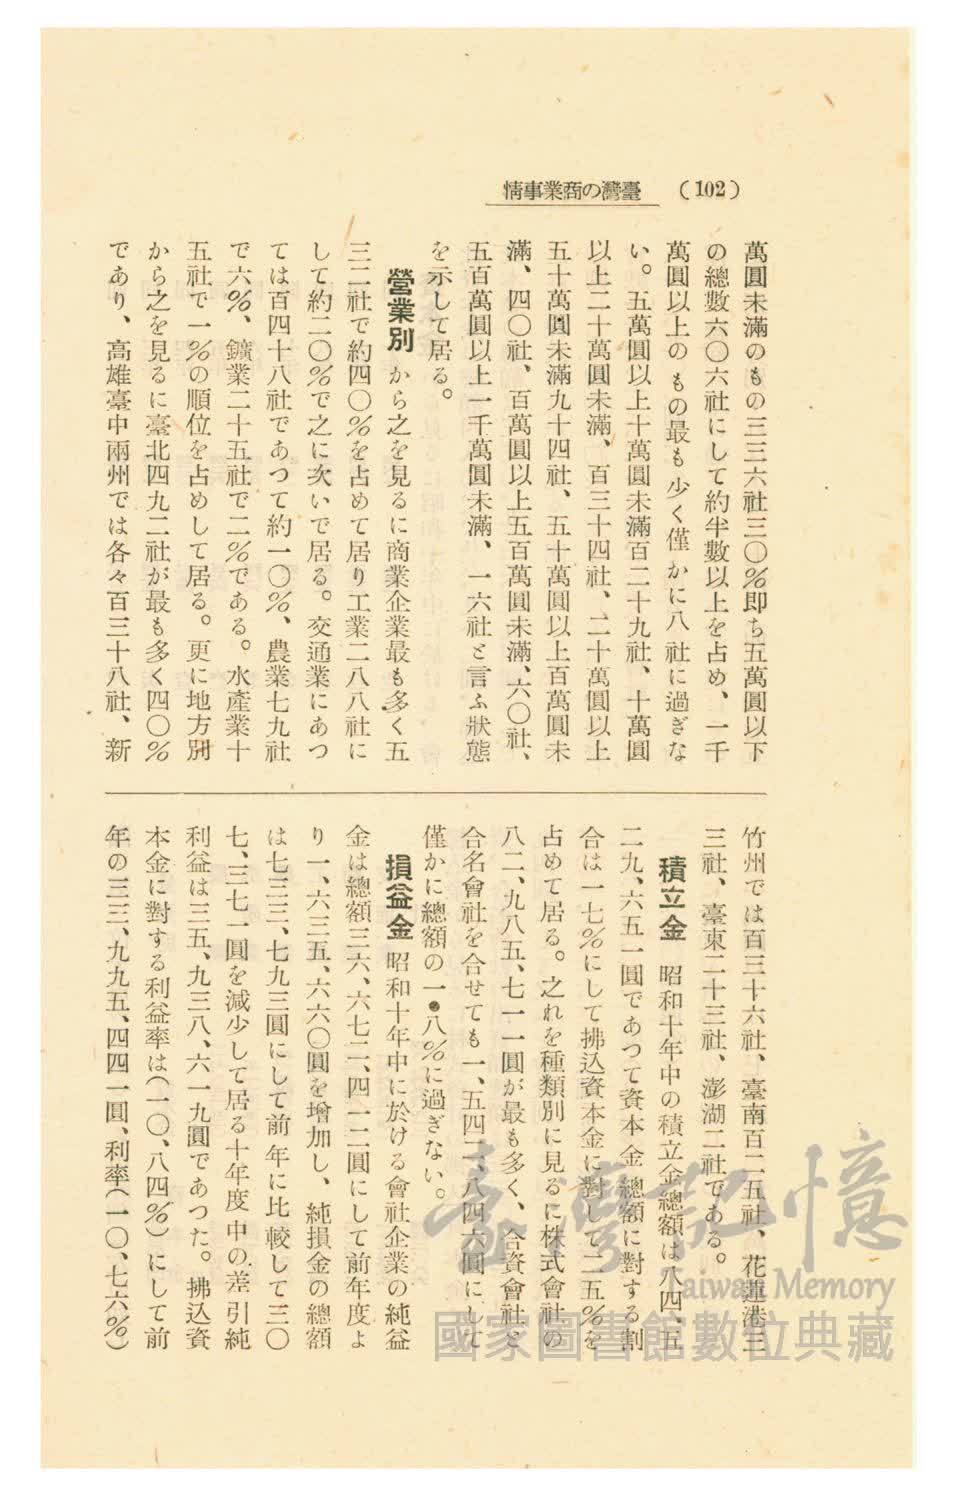 臺灣の商業事情 (102)
萬圓未滿のもの三三六社三〇％卽ち五萬圓以下
の總數六〇六社にして約半數以上を占め、一千
萬圓以上のもの最も少く僅かに八社に過ぎな
い。五萬圓以上十萬圓未滿百二十九社、十萬圓
以上二十萬圓未滿、百三十四社、二十萬圓以上
五十萬圓未滿九十四社、五十萬圓以上百萬圓未
滿、四〇社、百萬圓以上五百萬圓未滿、六〇社、
五百萬圓以上一千萬圓未滿、一六社と言ふ狀態
を示して居る。
營業別 から之を見るに商業企業最も多く五
三二社で約四〇％を占めて居り工業二八八社に
して約二〇％で之に次いで居る。交通業にあつ
ては百四十八社であつて約一〇％、農業七九社
で六％、鑛業二十五社で二％である。水產業十
五社で一％の順位を占めして居る。更に地方別
から之を見るに臺北四九二社が最も多く四〇％
であり、高雄臺中兩州では各々百三十八社、新
竹州では百三十六社、臺南百二五社、花蓮港三
三社、臺東二十三社、澎湖二社である。
積立金 昭和十年中の積立金總額は八四、五
二九、六五一圓であつて資本金總額に對する割
合は一七％にして拂込資本金に對して二五％を
占めて居る。之れを種類別に見るに株式會社の
八二、九八五、七一一圓が最も多く、合資會社と
合名會社を合せても一、五四二、八四六圓にして
僅かに總額の一•八％に過ぎない。
損益金 昭和十年中に於ける會社企業の純益
金は總額三六、六七二、四一二圓にして前年度よ
り一、六三五、六六〇圓を增加し、純損金の總額
は七三三、七九三圓にして前年に比較して三〇
七、三七一圓を減少して居る十年度中の差引純
利益は三五、九三八、六一九圓であつた。拂込資
本金に對する利益率は(一〇、八四％)にして前
年の三三、九九五、四四一圓、利率(一〇、七六％)
臺灣記憶
Taiwan Memory
國家圖書館數位典藏